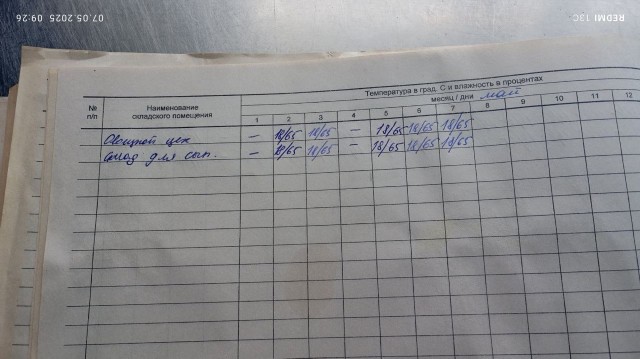 07.05.2025 09:26
REDMI 13C
Температура в град. С и влажность в процентах
месяц / дни май
№ п/п
Наименование складского помещения
1 2 3 4 5 6 7 8 9 10 11 12
Овощной цех — 18/65 18/65 — 18/65 18/65 18/65
Склад для сып. — 18/65 18/65 — 18/65 18/65 18/65